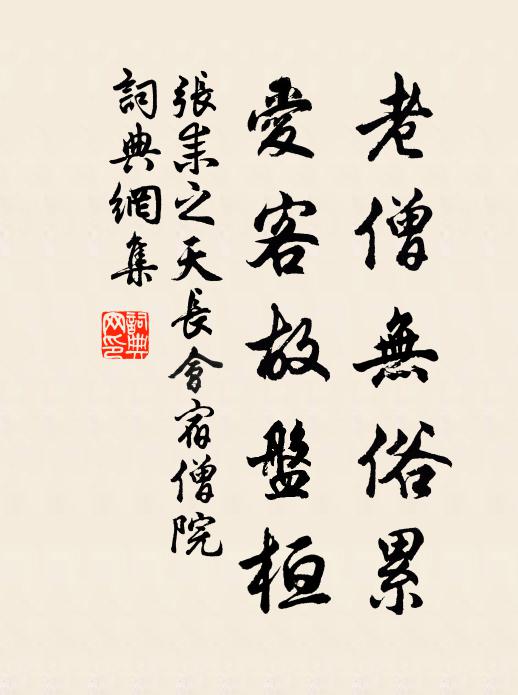 老僧無俗累
愛客故盤桓
張耒之天長會宿僧院
詞典網集
詞典
网印